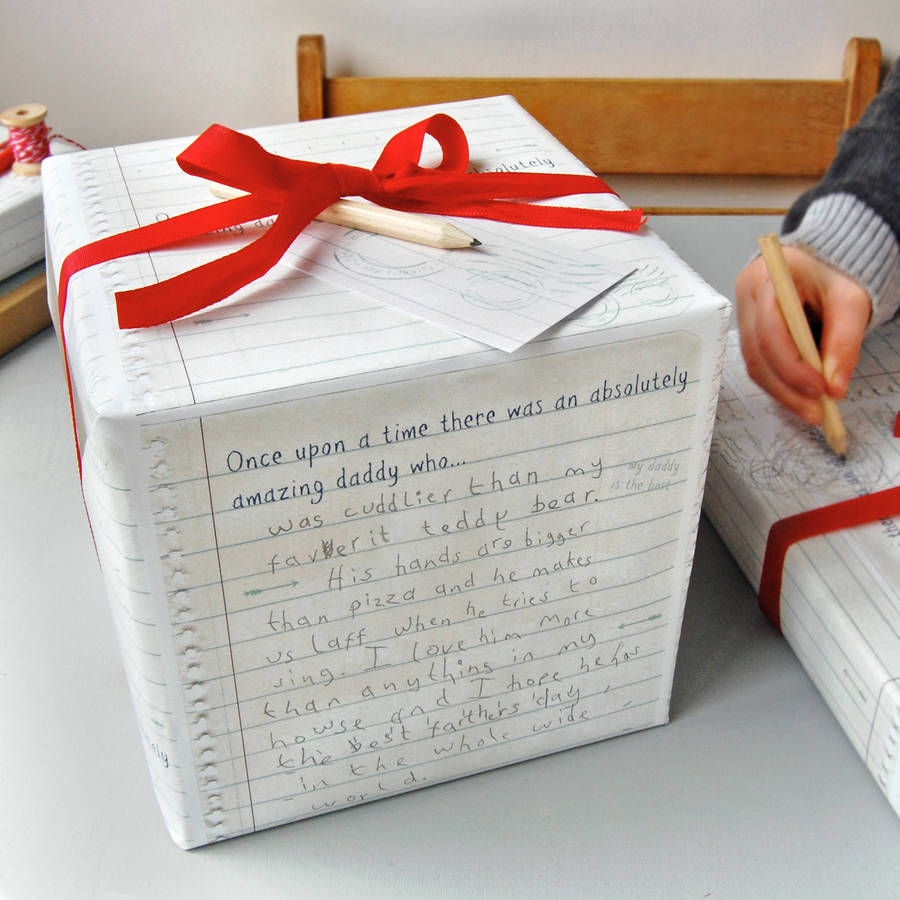 absolutely
Once upon a time there was an absolutely
amazing daddy who...
my daddy
is the best
was cuddlier than my
faverit teddy bear.
His hands are bigger
than pizza and he makes
us laff when he tries to
sing. I love him more
than anything in my
house and I hope he has
the best farthers day
in the whole wide
world.